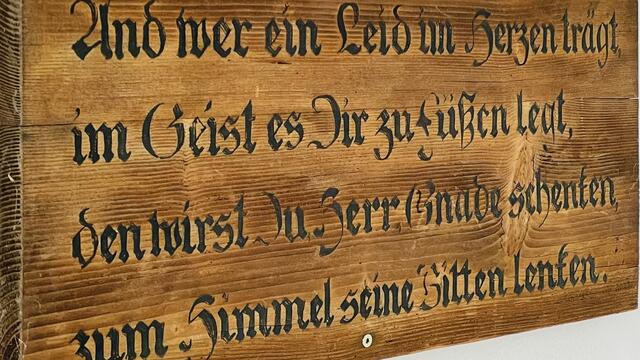 Und wer ein Leid im Herzen trägt,
im Geist es Dir zu Füßen legt,
den wirst Du, Herr, Gnade schenken,
zum Himmel seine Bitten lenken.